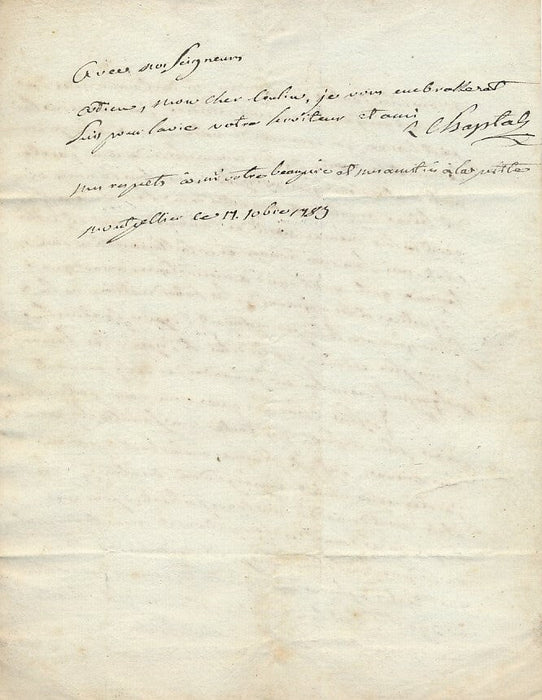 avec nos seigneurs
adieu, mon cher Cousin, je vous embrasse et
suis pour la vie votre serviteur et ami
Chaptal
mes respects à mr votre beaupère et mes amitiés à la petite
montpellier ce 17. xobre 1783